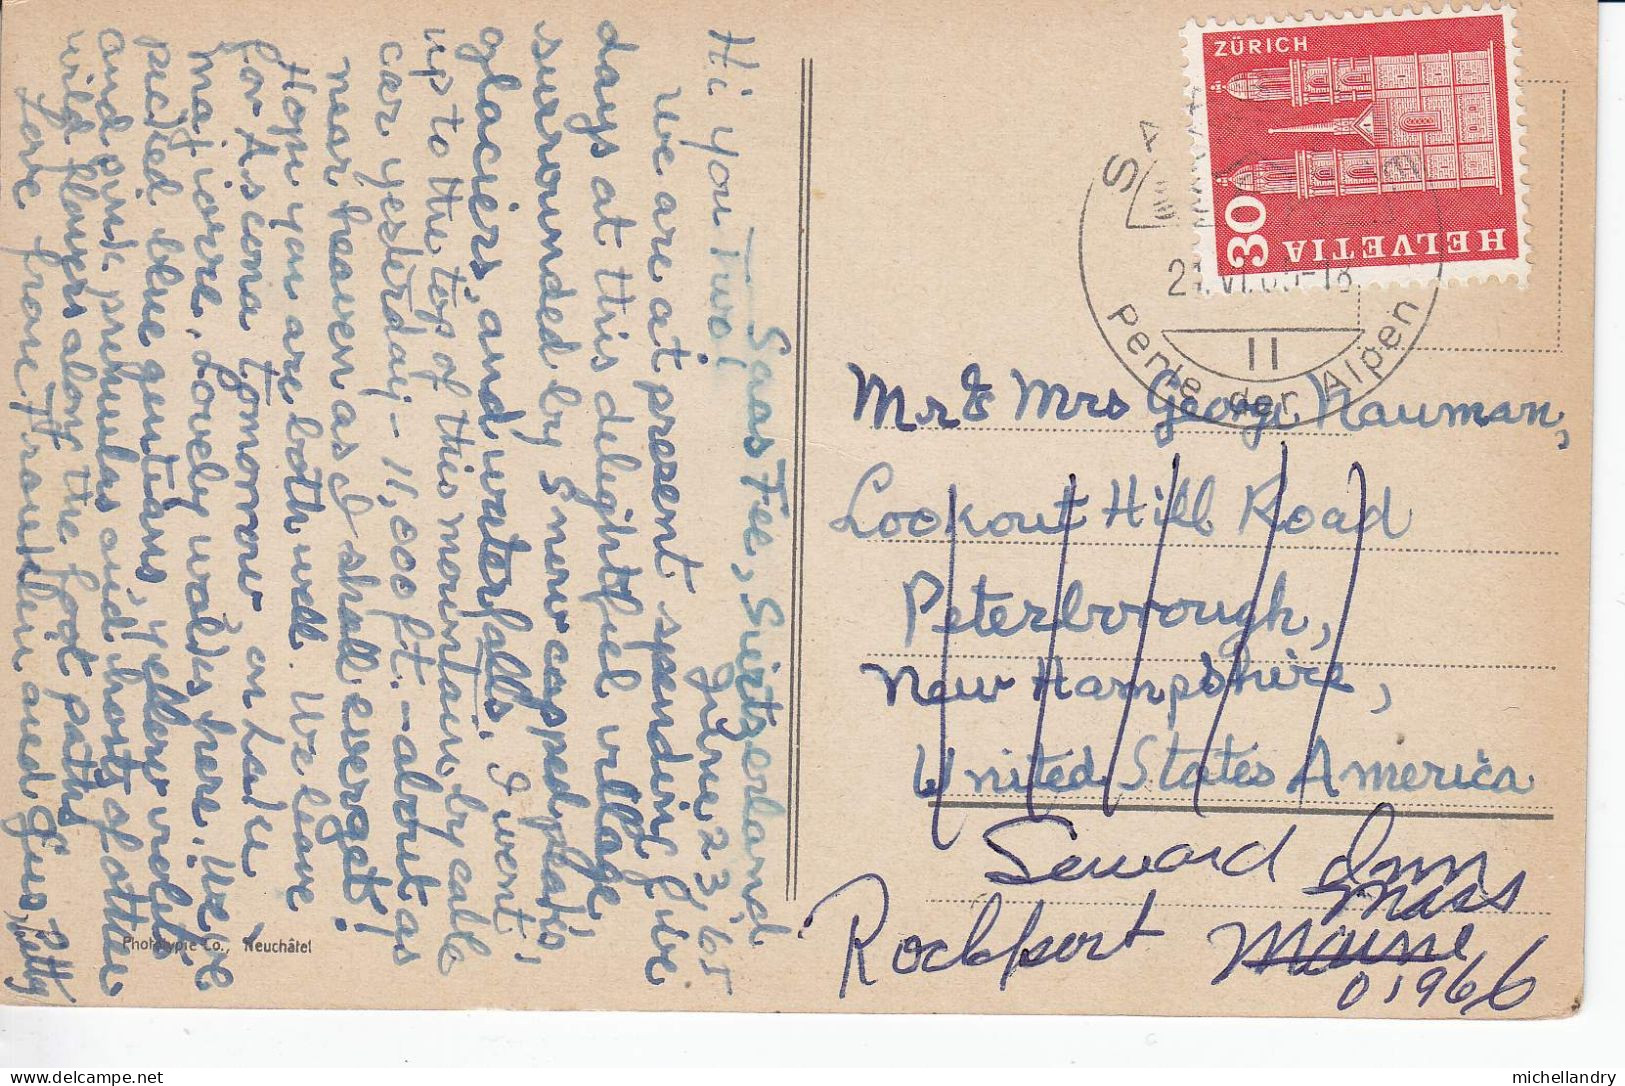 Saas Fee, Switzerland
June 23, 65
Hi you Two!
We are at present spending five
days at this delightful village
surrounded by snow capped peaks,
glaciers, and waterfalls. I went
up to the top of this mountain by cable
car yesterday - 11,000 ft. - about as
near heaven as I shall ever get!
Hope you are both well. We leave
for Ascona Tomorrow on Lake
Maggiore. Lovely walks here. We've
picked blue gentians, yellow violets
and pink primulas and hosts of other
wild flowers along the foot paths
Love from Franklin and Gus, Patty
Phototypie Co., Neuchâtel
ZÜRICH
30
HELVETIA
SAA
21.VI.65-18
II
Perle der Alpen
Mr & Mrs George Nauman,
Lookout Hill Road
Peterborough,
New Hampshire,
United States America
Seward Inn
Mass
Rockport Maine
01966
michellandry